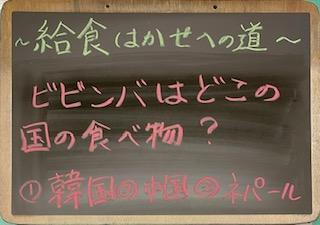 ～給食はかせへの道～
ビビンバはどこの
国の食べ物？
①韓国②中国③ネパール